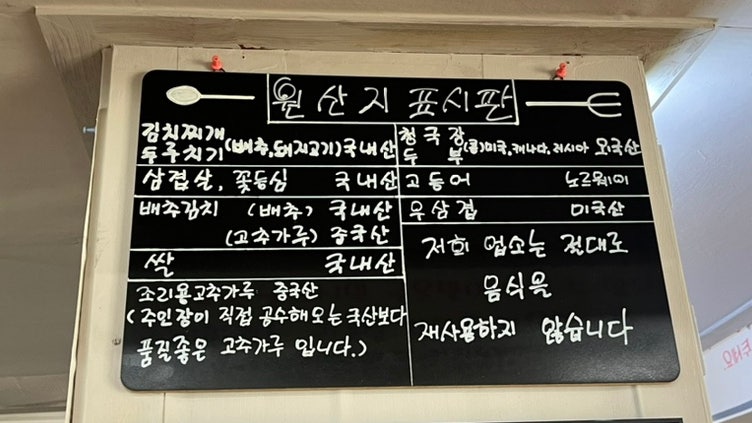 원산지 표시판
김치찌개
두루치기 (배추, 돼지고기) 국내산
삼겹살, 꽃등심 국내산
배추김치 (배추) 국내산
(고추가루) 중국산
쌀 국내산
조리용고추가루 중국산
(주인장이 직접 공수해오는 국산보다
품질좋은 고추가루 입니다.)
청국장
두부 (콩)미국, 캐나다, 러시아 외국산
고등어 노르웨이
우삼겹 미국산
저희 업소는 절대로
음식을
재사용하지 않습니다